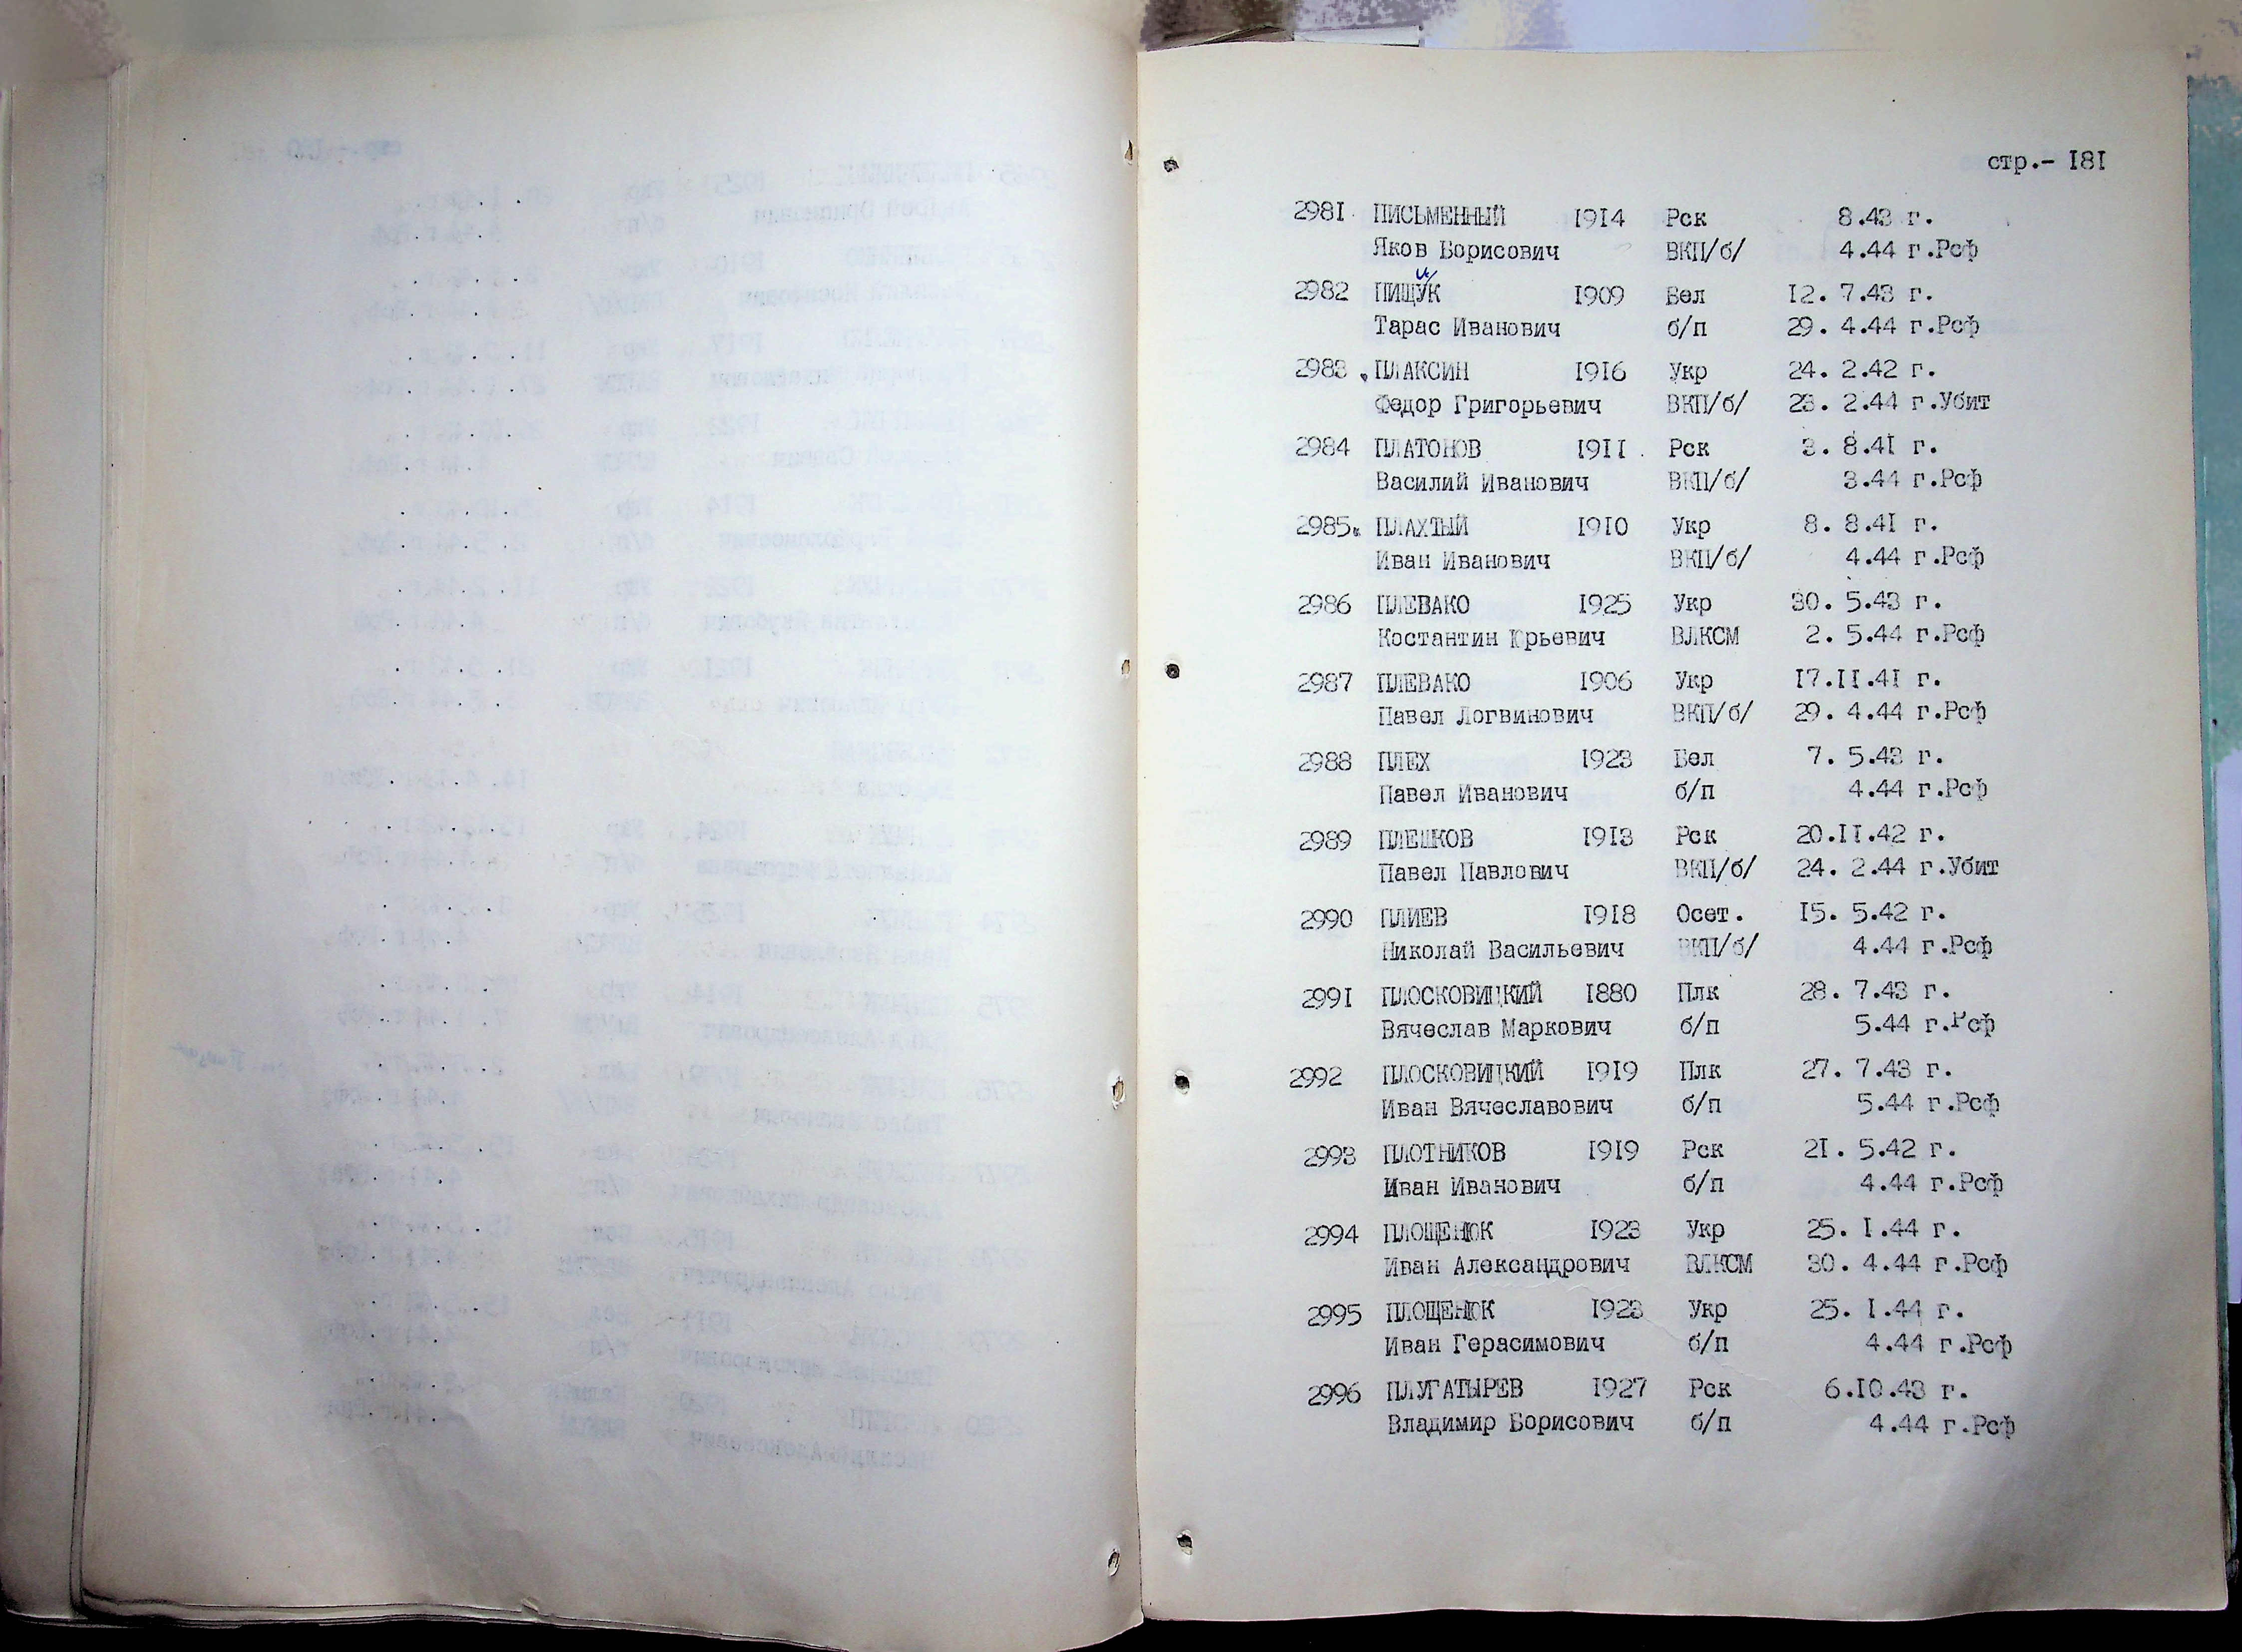 стр.- 181
2981 ПИСЬМЕННЫЙ 1914 Рск 8.43 г.
Яков Борисович ВКП/б/ 4.44 г.Рсф
2982 ПИЩУК 1909 Бел 12. 7.43 г.
Тарас Иванович б/п 29. 4.44 г.Рсф
2983 ПЛАКСИН 1916 Укр 24. 2.42 г.
Федор Григорьевич ВКП/б/ 23. 2.44 г.Убит
2984 ПЛАТОНОВ 1911 Рск 3. 8.41 г.
Василий Иванович ВКП/б/ 3.44 г.Рсф
2985 ПЛАХТЫЙ 1910 Укр 8. 8.41 г.
Иван Иванович ВКП/б/ 4.44 г.Рсф
2986 ПЛЕВАКО 1925 Укр 30. 5.43 г.
Костантин Юрьевич ВЛКСМ 2. 5.44 г.Рсф
2987 ПЛЕВАКО 1906 Укр 17.11.41 г.
Павел Логвинович ВКП/б/ 29. 4.44 г.Рсф
2988 ПЛЕХ 1923 Бел 7. 5.43 г.
Павел Иванович б/п 4.44 г.Рсф
2989 ПЛЕШКОВ 1913 Рск 20.11.42 г.
Павел Павлович ВКП/б/ 24. 2.44 г.Убит
2990 ПЛИЕВ 1918 Осет. 15. 5.42 г.
Николай Васильевич ВКП/б/ 4.44 г.Рсф
2991 ПЛОСКОВИЦКИЙ 1880 Плк 28. 7.43 г.
Вячеслав Маркович б/п 5.44 г.Рсф
2992 ПЛОСКОВИЦКИЙ 1919 Плк 27. 7.43 г.
Иван Вячеславович б/п 5.44 г.Рсф
2993 ПЛОТНИКОВ 1919 Рск 21. 5.42 г.
Иван Иванович б/п 4.44 г.Рсф
2994 ПЛОЩЕНЮК 1923 Укр 25. 1.44 г.
Иван Александрович ВЛКСМ 30. 4.44 г.Рсф
2995 ПЛОЩЕНЮК 1923 Укр 25. 1.44 г.
Иван Герасимович б/п 4.44 г.Рсф
2996 ПЛУГАТЫРЕВ 1927 Рск 6.10.43 г.
Владимир Борисович б/п 4.44 г.Рсф